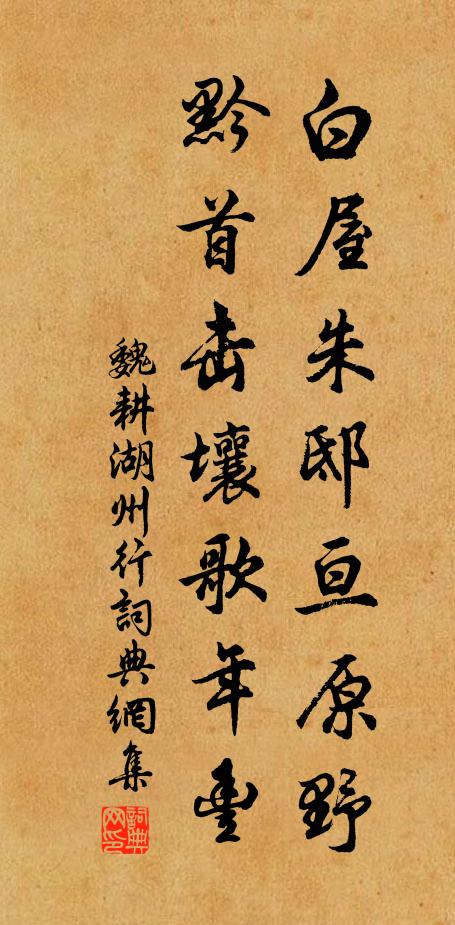 白屋朱邸亘原野
黔首击壤歌年丰
魏耕湖州行詞典網集
詞典网印